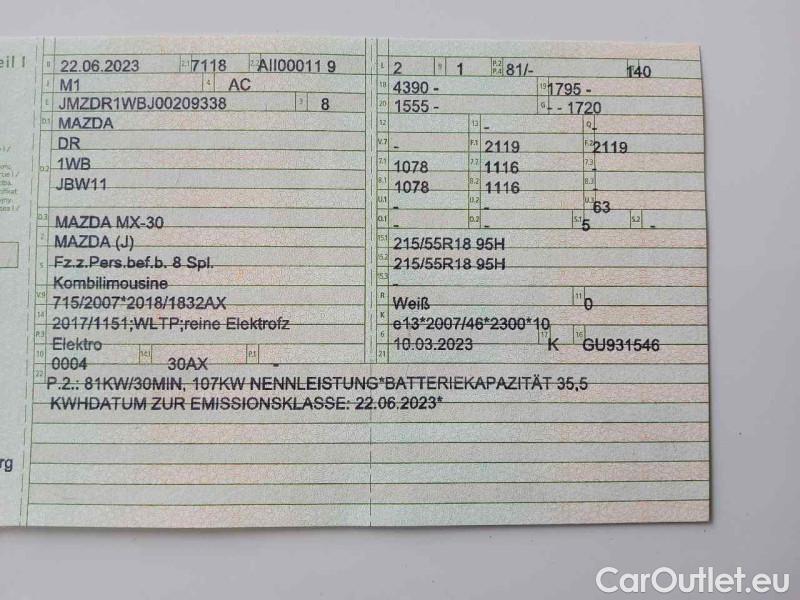 eil I
B 22.06.2023 2.1 7118 2.2 AII00011 9
J M1 4 AC
E JMZDR1WBJ00209338 3 8
D.1 MAZDA
DR
D.2 1WB
JBW11
D.3 MAZDA MX-30
2 MAZDA (J)
5 Fz.z.Pers.bef.b. 8 Spl.
Kombilimousine
V.9 715/2007*2018/1832AX
14 2017/1151;WLTP;reine Elektrofz
P.3 Elektro
10 0004 14.1 30AX P.1 -
L 2 9 1 P.2 P.4 81/- 140
18 4390 - 19 1795 -
20 1555 - G - - 1720
12 - 13 - Q -
V.7 - F.1 2119 F.2 2119
7.1 1078 7.2 1116 7.3 -
8.1 1078 8.2 1116 8.3 -
U.1 - U.2 - U.3 63
O.1 - O.2 - S.1 5 S.2 -
15.1 215/55R18 95H
15.2 215/55R18 95H
15.3 -
R Weiß 11 0
K e13*2007/46*2300*10
6 10.03.2023 17 K 16 GU931546
21
22 P.2.: 81KW/30MIN, 107KW NENNLEISTUNG*BATTERIEKAPAZITÄT 35,5
KWHDATUM ZUR EMISSIONSKLASSE: 22.06.2023*
rg
CarOutlet.eu